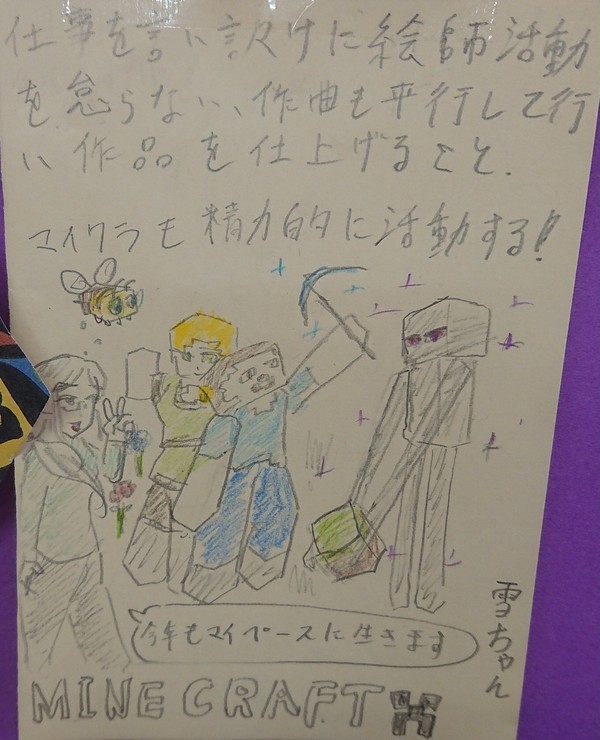 仕事を言い訳けに絵師活動
を怠らない、作曲も平行して行
い作品を仕上げること.
マイクラも精力的に活動する!
今年もマイペースに生きます
雪ちゃん
MINECRAFT